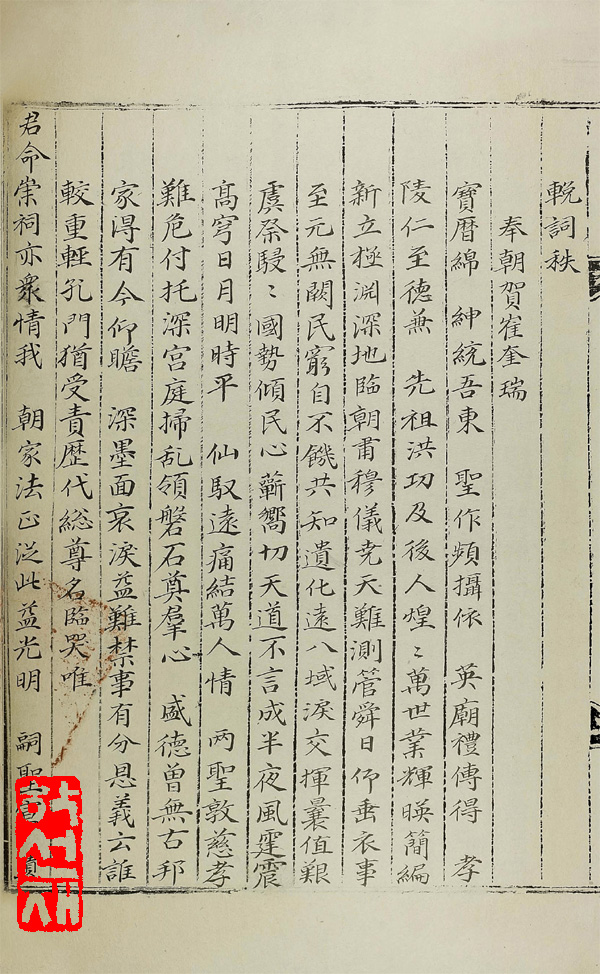 輓詞秩
奉朝賀崔奎瑞
寶曆綿 紳統吾東 聖作頻攝依 英廟禮傳得 孝
陵仁至德兼 先祖洪功及後人煌〻萬世業輝暎簡編
新立極淵深地臨朝肅穆儀堯天難測管舜日仰垂衣事
至元無闕民窮自不饑共知遺化遠八域淚交揮曩值艱
虞祭駸〻國勢傾民心蘄嚮切天道不言成半夜風霆震
高穹日月明時平 仙馭遠痛結萬人情 兩聖敦慈孝
難危付托深宮庭掃乱領磐石奠羣心 盛德曾無古邦
家淂有今仰瞻 深墨面哀淚益難禁事有分恩義云誰
較重輕孔門猶受責歷代総尊名臨哭唯
君命崇祠亦衆情我 朝家法正從此益光明 嗣聖